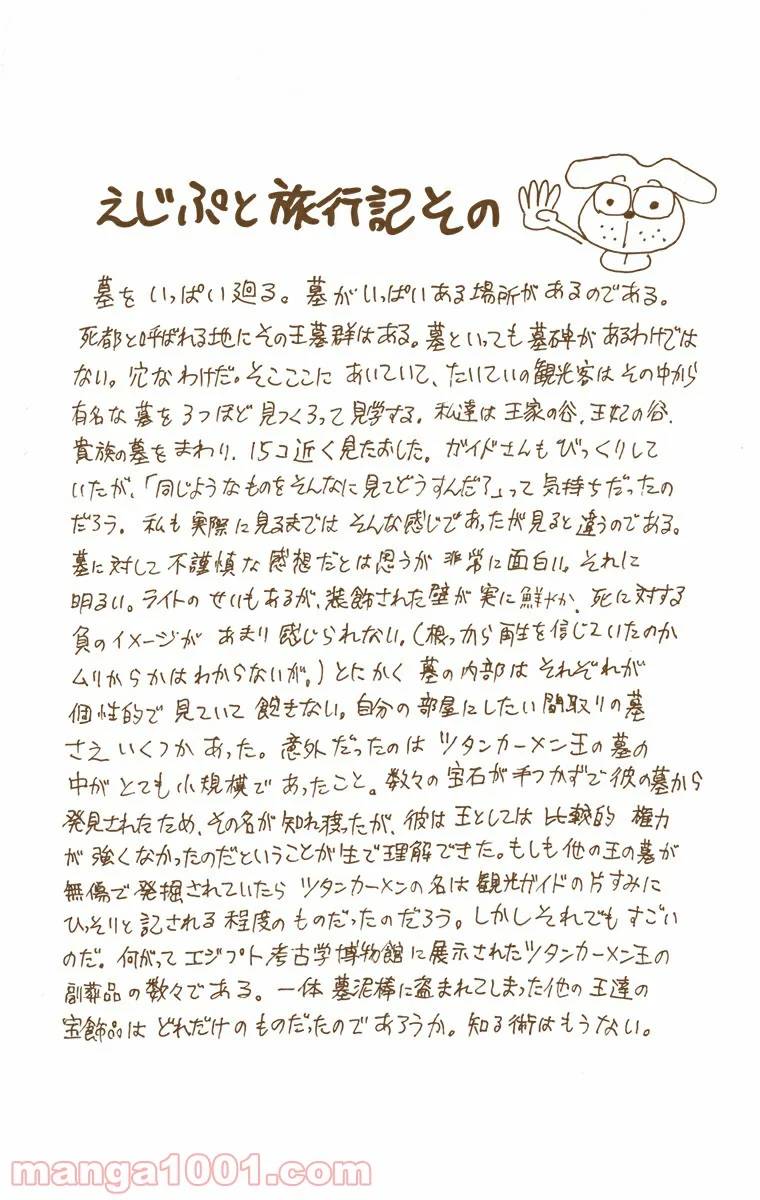 えじぷと旅行記その
墓をいっぱい廻る。墓がいっぱいある場所があるのである。
死都と呼ばれる地にその王墓群はある。墓といっても墓碑があるわけでは
ない。穴なわけだ。そこここに あいていて、たいていの観光客は その中から
有名な 墓を 3つほど 見つくろって 見学する。私達は 王家の谷、王妃の谷、
貴族の墓を まわり、15コ近く見たおした。ガイドさんも びっくりして
いたが、「同じようなものをそんなに見てどうすんだ?」って 気持ちだったの
だろう。 私も 実際に見るまでは そんな感じであったが見ると 違うのである。
墓に対して 不謹慎な 感想だとは思うが 非常に面白い。それに
明るい。ライトの せいもあるが、装飾された 壁が 実に 鮮やか、死に対する
負のイメージが あまり 感じられない。(根っから再生を信じていたのか
ムリからかはわからないが。) とにかく 墓の内部は それぞれが
個性的で 見ていて 飽きない。自分の 部屋にしたい 間取りの墓
さえ いくつか あった。意外だったのは ツタンカーメン王の 墓の
中が とても 小規模で あったこと。数々の 宝石が 手つかずで 彼の墓から
発見されたため、その名が 知れ渡ったが、彼は 王としては 比較的 権力
が 強くなかったのだということが 生で 理解できた。もしも 他の王の墓が
無傷で 発掘されていたら ツタンカーメンの名は 観光ガイドの 片すみに
ひっそりと 記される 程度の ものだったのだろう。しかし それでも すごい
のだ。何がって エジプト考古学博物館に 展示された ツタンカーメン王の
副葬品の 数々である。 一体 墓泥棒に 盗まれてしまった 他の王達の
宝飾品は どれだけの ものだったのであろうか。知る術はもうない。
manga1001.com